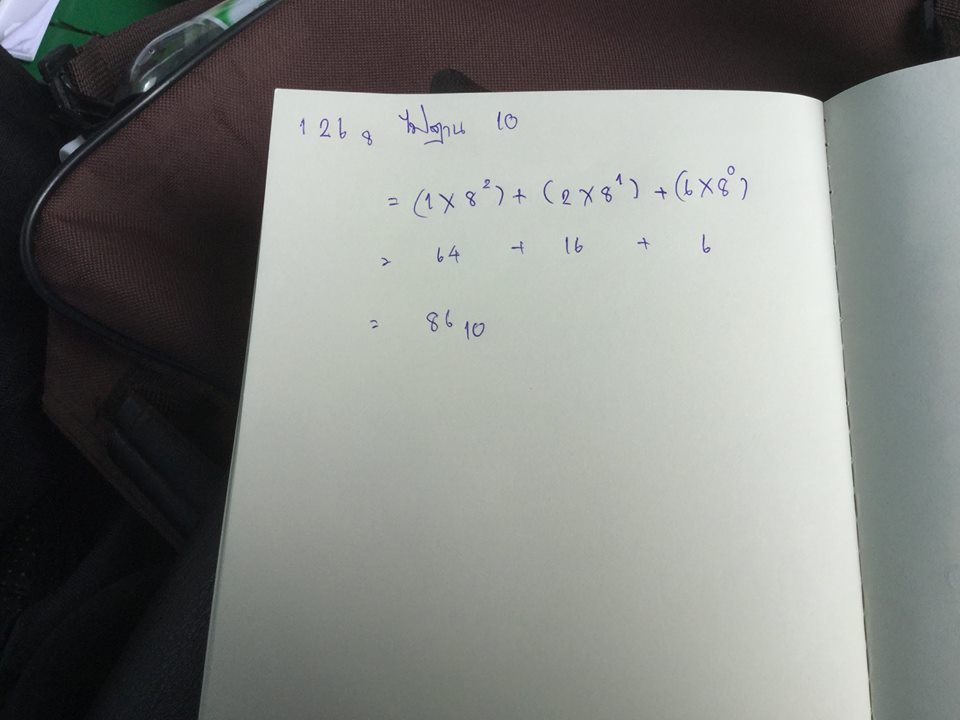 126₈ ไปฐาน 10
= (1 × 8²) + (2 × 8¹) + (6 × 8⁰)
= 64 + 16 + 6
= 86₁₀